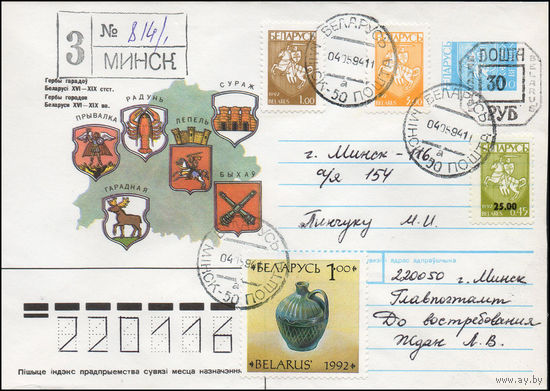 З № 814/1
МИНСК
Гербы гарадоў
Беларусі XVI — XIX стст.
Гербы городов
Беларуси XVI — XIX вв.
ПРЫВАЛКА
РАДУНЬ
СУРАЖ
ЛЕПЕЛЬ
ГАРАДНАЯ
БЫХАЎ
БЕЛАРУСЬ
1992 1.00
BELARUS
БЕЛАРУСЬ
BELARUS
ПОШТА
30
РУБ
БЕЛАРУСЬ
04 05 94 11
а
МІНСК-50 ПОШТА
БЕЛАРУСЬ
04 05 94 11
а
МІНСК-50 ПОШТА
25.00
1992 0.45
BELARUS
г. Минск-16
а/я 154
Пинчуку М. И.
БЕЛАРУСЬ
04 05 94
а
МІНСК-50 ПОШТА
БЕЛАРУСЬ 1.00
BELARUS' 1992
адрас адпраўшчыка
220050 г. Минск
Главпочтамт
До востребования
Ждан Л. В.
220116
Пішыце індэкс прадпрыемства сувязі месца назначэння
www.ay.by